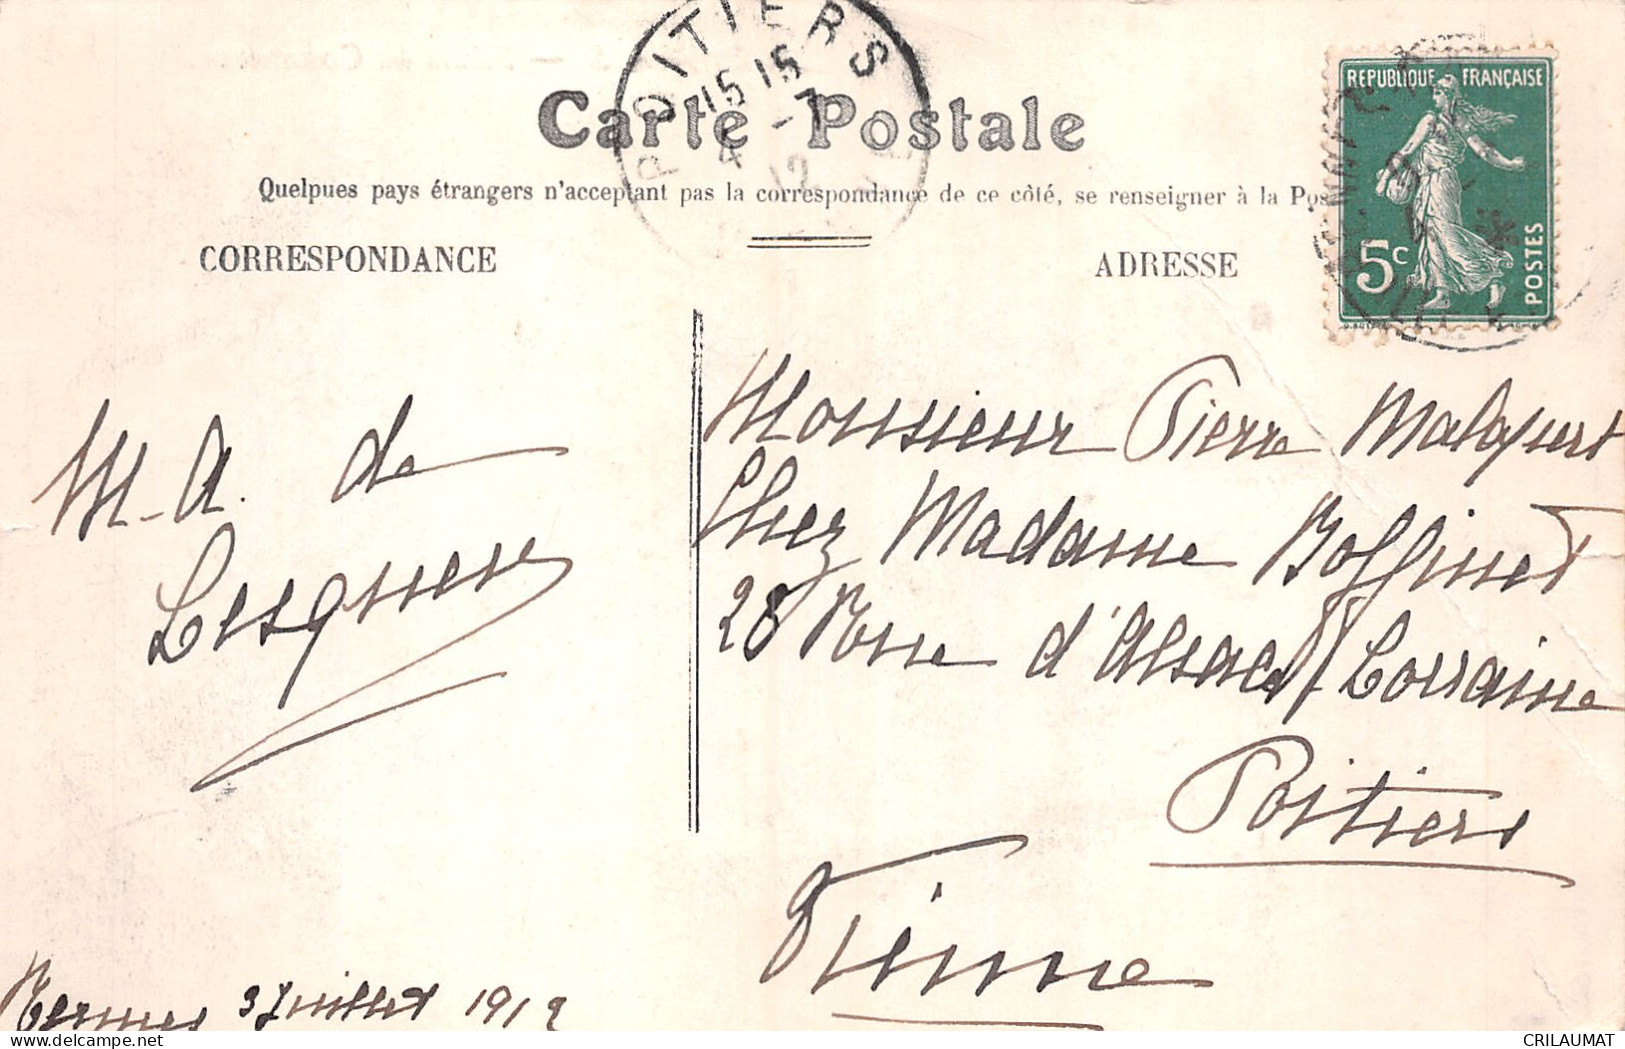 POITIERS
15 15
4 - 7
12
Carte Postale
RÉPUBLIQUE FRANÇAISE
5c
POSTES
Quelques pays étrangers n'acceptant pas la correspondance de ce côté, se renseigner à la Pos
CORRESPONDANCE
ADRESSE
M. A. de
Lesquen
Monsieur Pierre Malapert
Chez Madame Boffinet
28 Rue d'Alsace Lorraine
Poitiers
Vienne
Rennes 3 Juillet 1912
CRILAUMAT